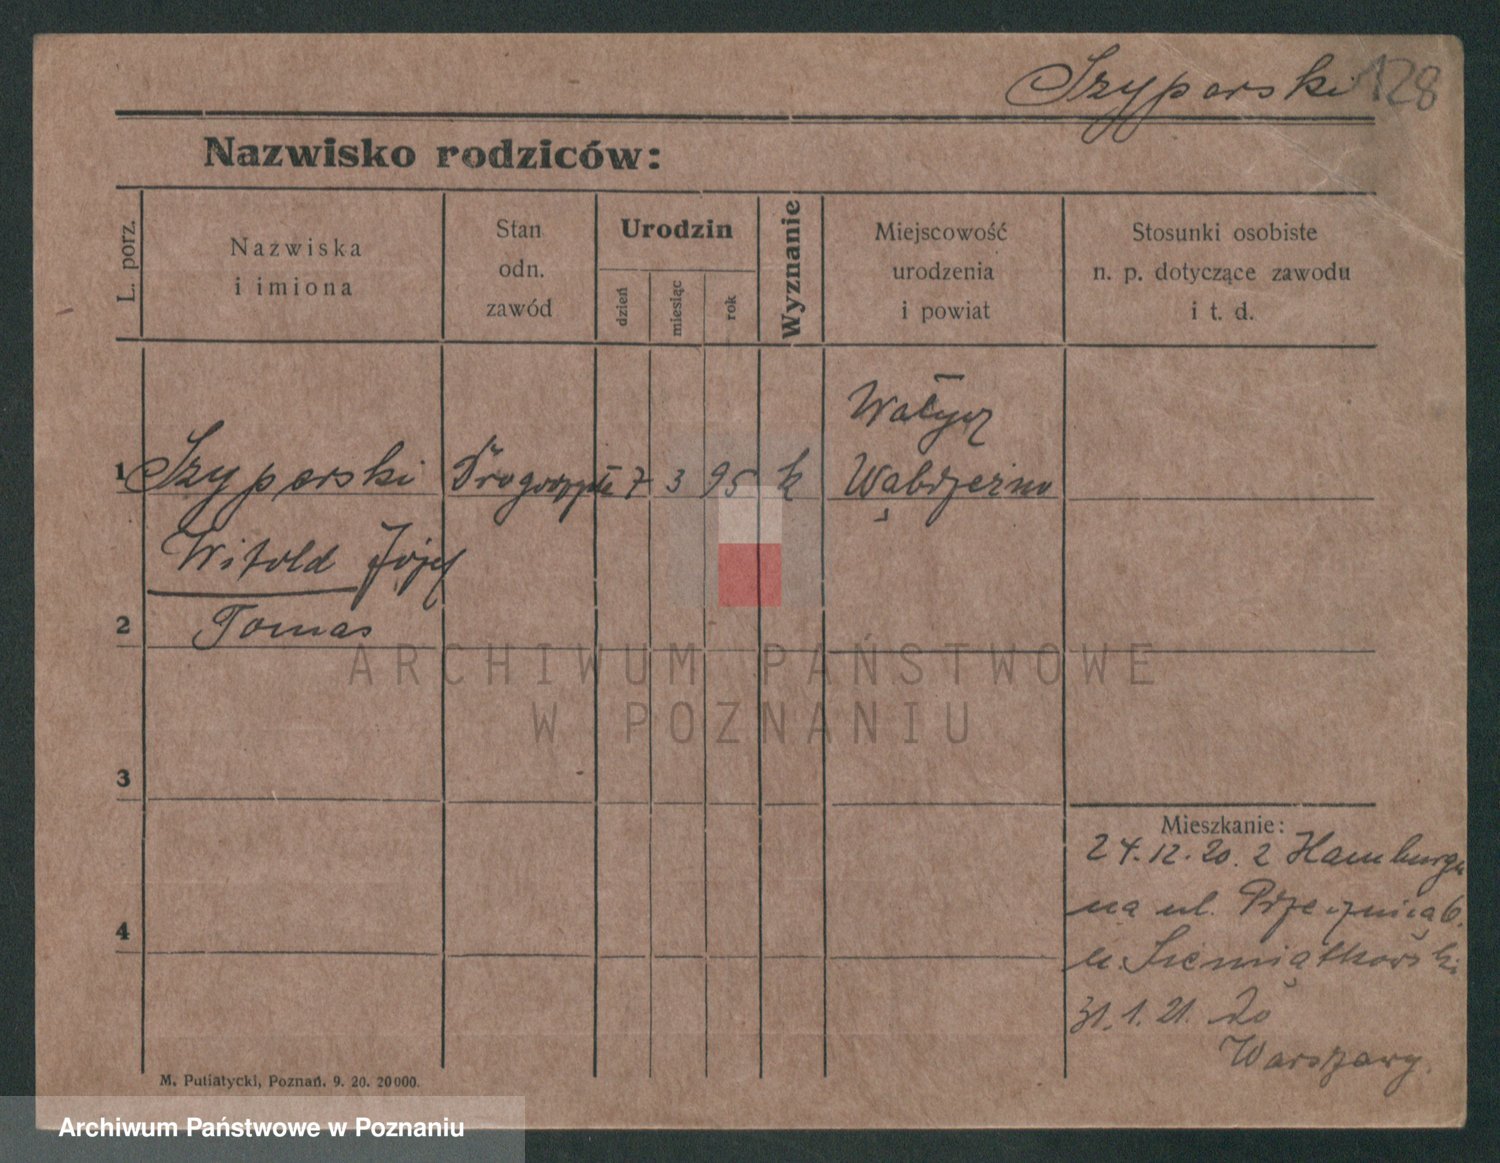 Szyperski 128
Nazwisko rodziców:
L. porz.
Nazwiska
i imiona
Stan
odn.
zawód
Urodzin
dzień
miesiąc
rok
Wyznanie
Miejscowość
urodzenia
i powiat
Stosunki osobiste
n. p. dotyczące zawodu
i t. d.
Wałycz
1 Szyperski 7 3 95 k Wąbrzeźno
Witold Józef
2 Tomas
3
Mieszkanie:
24.12.20. z Hamburga
na ul. 6.
4
u. Siemiątkowski
31.1.21. do
Warszawy.
M. Putiatycki, Poznań. 9. 20. 20000.
ARCHIWUM PAŃSTWOWE
W POZNANIU
Archiwum Państwowe w Poznaniu